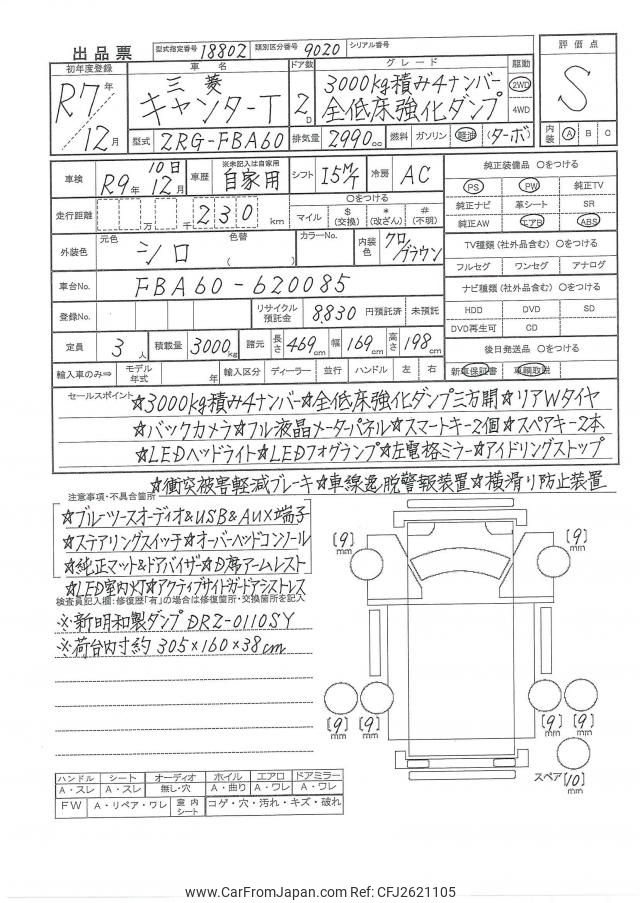 出品票 型式指定番号 18802 類別区分番号 9020 シリアル番号
初年度登録 車名 ドア数 グレード 駆動 評価点
R7年 12月 三菱 キャンターT 2D 3000kg積み4ナンバー 全低床強化ダンプ 2WD 4WD S
型式 2RG-FBA60 排気量 2990cc 燃料 ガソリン 軽油 (ターボ) 内装 A B C
車検 R9年 12月 10日 車歴 ※未記入は自家用 自家用 シフト 15M/T 冷房 AC
走行距離 万 千 230 km 〇をつける マイル $(交換) *(改ざん) #(不明)
外装色 元色 シロ 色替 ( ) カラーNo. 内装色 クロ/ブラウン
車台No. FBA60-620085
登録No. リサイクル預託金 8830 円預託済 未預託
定員 3人 積載量 3000kg 諸元 長さ 469cm 幅 169cm 高さ 198cm
輸入車のみ⇒ モデル年式 輸入区分 ディーラー 並行 ハンドル 左 右
純正装備品 〇をつける
PS PW 純正TV
純正ナビ 革シート SR
純正AW エアB ABS
TV種類(社外品含む) 〇をつける
フルセグ ワンセグ アナログ
ナビ種類(社外品含む) 〇をつける
HDD DVD SD
DVD再生可 CD
後日発送品 〇をつける
新車保証書 車輌取説
セールスポイント ☆3000kg積み4ナンバー☆全低床強化ダンプ三方開☆リアWタイヤ
☆バックカメラ☆フル液晶メーターパネル☆スマートキー2個☆スペアキー2本
☆LEDヘッドライト☆LEDフォグランプ☆左電格ミラー☆アイドリングストップ
☆衝突被害軽減ブレーキ☆車線逸脱警報装置☆横滑り防止装置
注意事項・不具合箇所
☆ブルーツースオーディオ&USB&AUX端子
☆ステアリングスイッチ☆オーバーヘッドコンソール
☆純正マット&ドアバイザー☆D席アームレスト
☆LED室内灯☆アクティブサイドガードアシストレス
検査員記入欄:修復歴「有」の場合は修復箇所・交換箇所を記入
※新明和製ダンプDRZ-0110SY
※荷台内寸約305×160×38cm
[9]mm [9]mm
[9]mm [9]mm [9]mm [9]mm
スペア [10]mm
ハンドル シート オーディオ ホイル エアロ ドアミラー
A・スレ A・スレ 無し・穴 A・曲り A・ワレ A・ワレ
FW A・リペア・ワレ 室内シート コゲ・穴・汚れ・キズ・破れ
www.CarFromJapan.com Ref: CFJ2621105